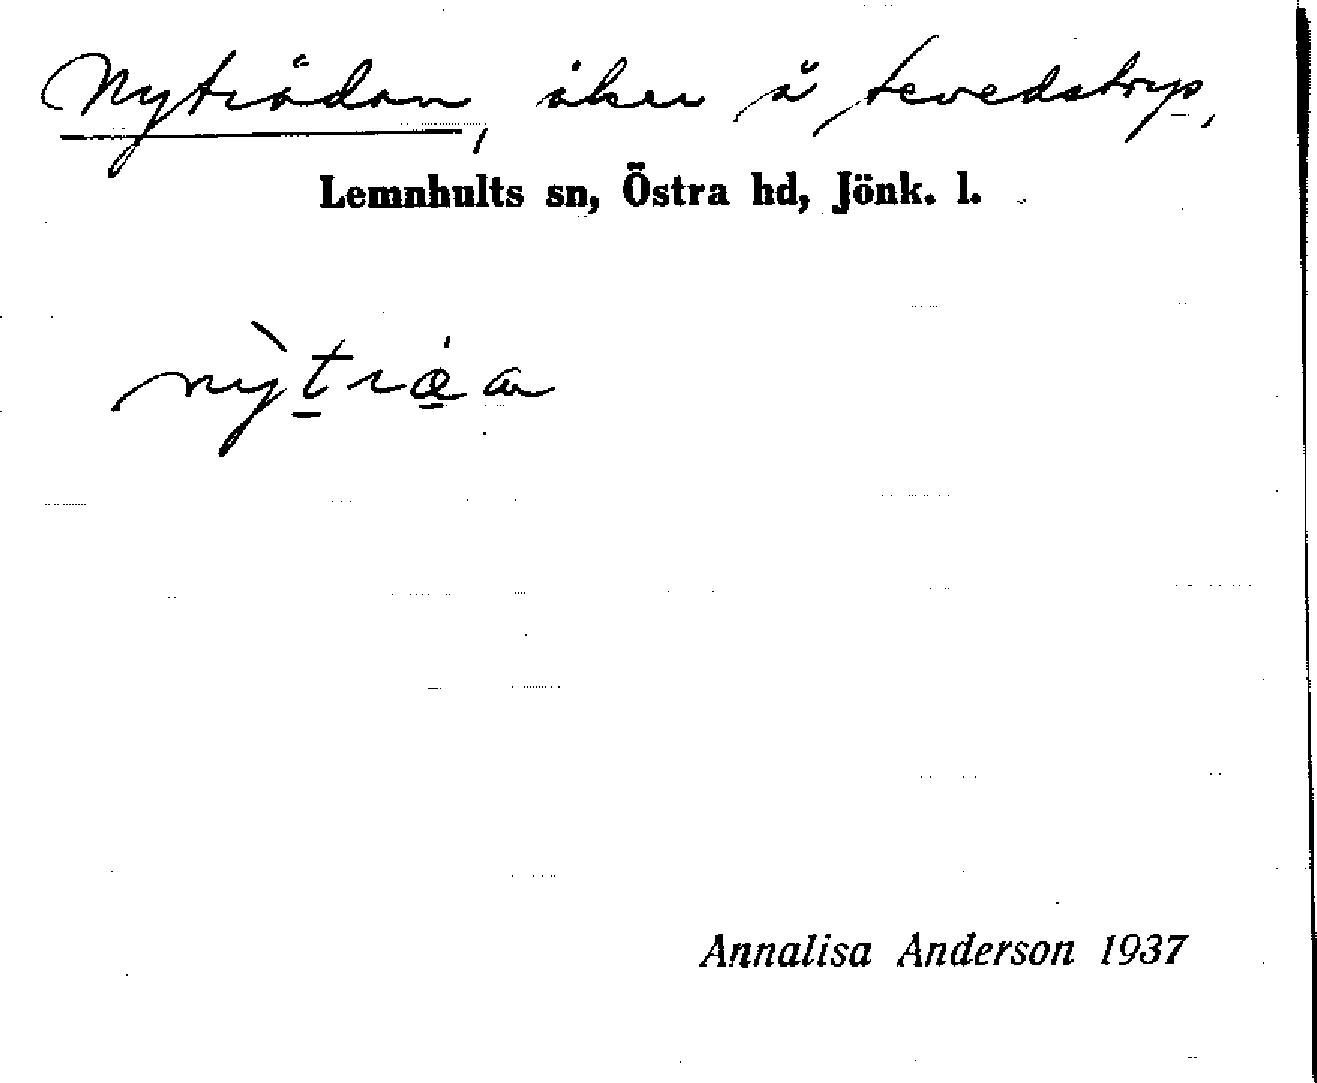 Nyträdan, åker å Fevedstorp,
Lemnhults sn, Östra hd, Jönk. l.
Annalisa Anderson 1937